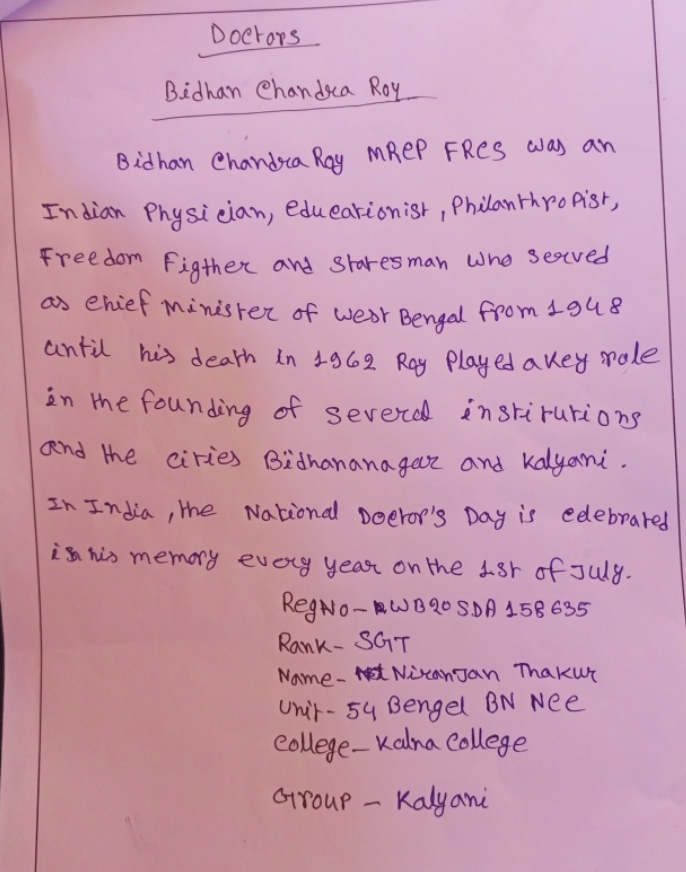 Doctors
Bidhan Chandra Roy
Bidhan Chandra Roy MRCP FRCS was an
Indian Physician, educationist, Philanthropist,
Freedom Figther and Statesman who served
as chief Minister of West Bengal from 1948
until his death in 1962 Roy Played a key role
in the founding of several institutions
and the cities Bidhananagar and Kalyani.
In India, the National Doctor's Day is celebrated
in his memory every year on the 1st of July.
Reg No - WB20SDA158635
Rank - SGT
Name - Niranjan Thakur
Unit - 54 Bengel BN NCC
College - Kalna College
Group - Kalyani